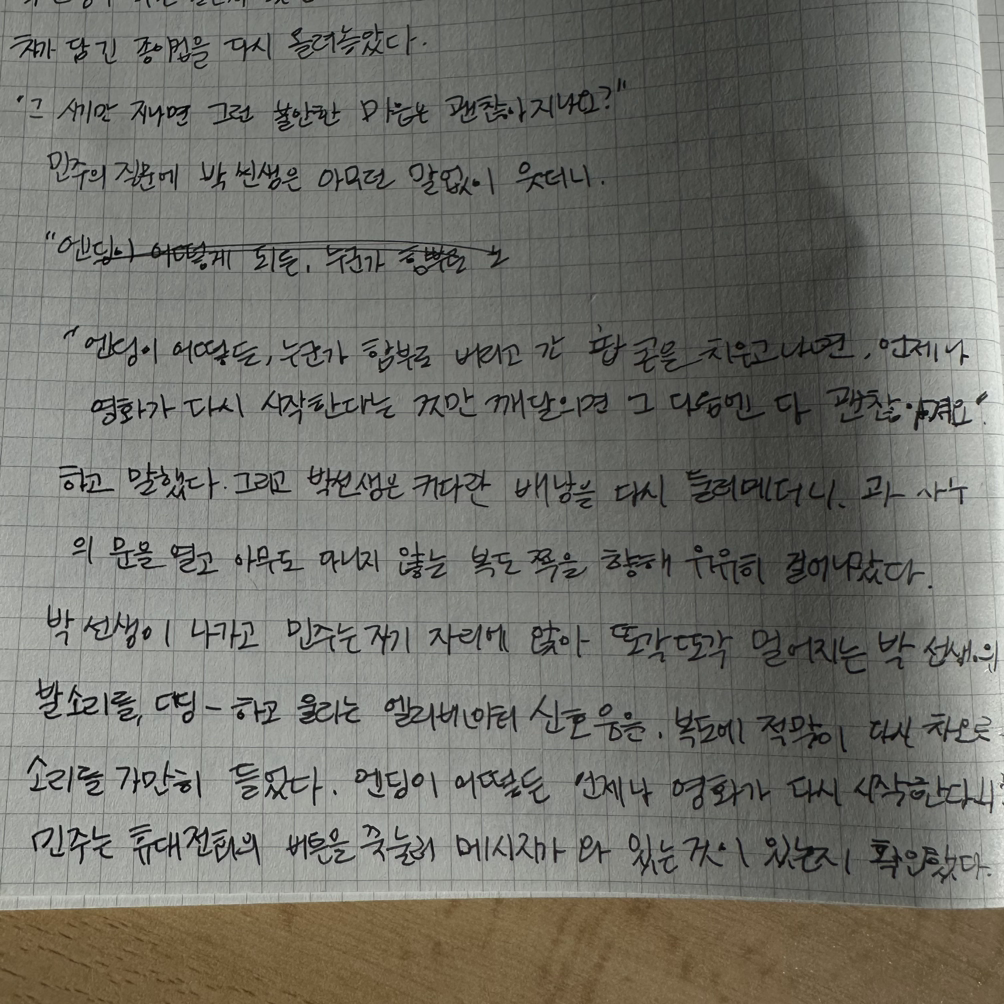 차가 담긴 종이컵을 다시 올려놓았다.
"그 시기만 지나면 그런 불안한 마음은 괜찮아지나요?"
민주의 질문에 박 선생은 아무런 말없이 웃더니.
"엔딩이 어떻게 되든, 누군가 함부로
"엔딩이 어떻든, 누군가 함부로 버리고 간 팝콘을 치우고 나면, 언제나
영화가 다시 시작한다는 것만 깨달으면 그 다음엔 다 괜찮아져요"
하고 말했다. 그리고 박선생은 커다란 배낭을 다시 둘러메더니, 과 사무
의 문을 열고 아무도 다니지 않는 복도 쪽을 향해 유유히 걸어나갔다.
박 선생이 나가고 민주는 자기 자리에 앉아 또각또각 멀어지는 박 선생의
발소리를, 띠딩- 하고 울리는 엘리베이터 신호음을, 복도에 적막이 다시 차오르
소리를 가만히 들었다. 엔딩이 어떻든 언제나 영화가 다시 시작한다니
민주는 휴대전화의 버튼을 꾹 눌러 메시지가 와 있는 것이 있는지 확인했다.